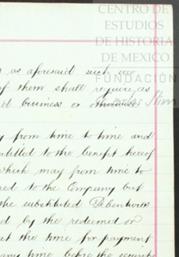 CENTRO DE
ESTUDIOS
DE HISTORIA
DE MEXICO
FUNDACIÓN
Carlos Slim
as aforesaid such
of them shall require as
business or otherwise
from time to time and
entitled to the benefit hereof
which may from time to
to the Company but
the substituted Debentures
by the redeemed or
the time for payment
any time before the